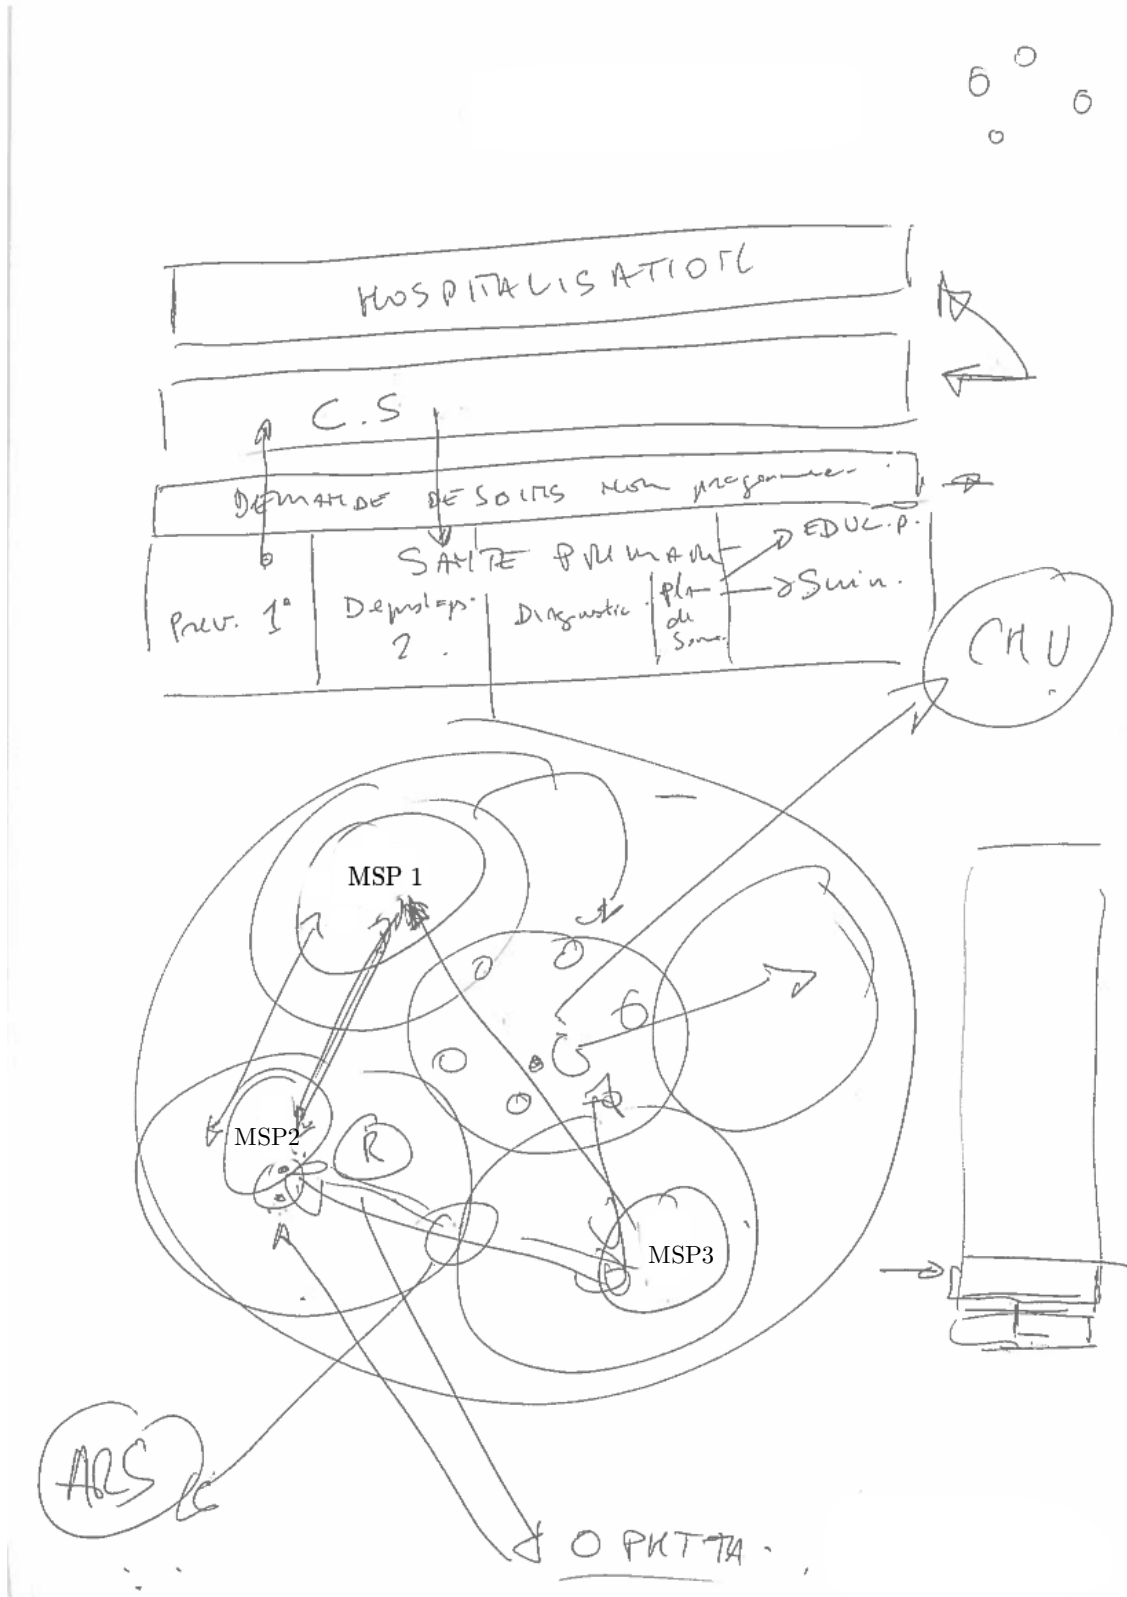 HOSPITALISATION
C.S
DEMANDE DE SOINS NON programmés
SANTE PRIMAIRE
EDUC. P.
Prev. 1°
Depistage
2.
Diagnostic
plan
de
Soins
Suivi.
CHU
MSP 1
MSP2
R
MSP3
ARS